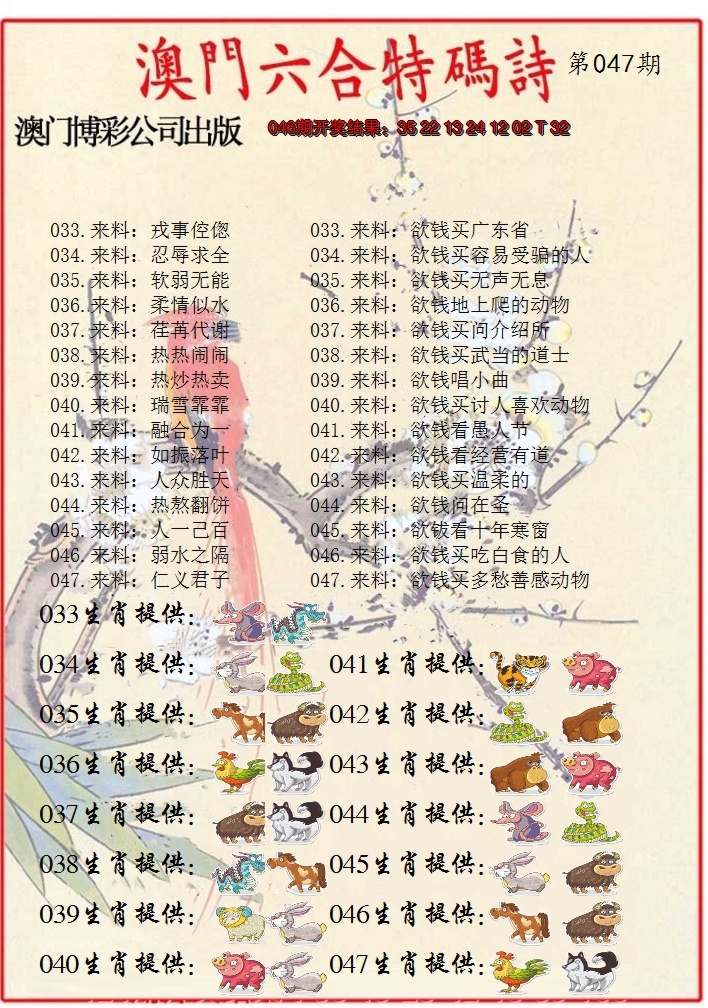 澳門六合特碼詩 第047期
澳门博彩公司出版 046期开奖结果：35 22 13 24 12 02 T 32
033.来料：戎事倥偬 033.来料：欲钱买广东省
034.来料：忍辱求全 034.来料：欲钱买容易受骗的人
035.来料：软弱无能 035.来料：欲钱买无声无息
036.来料：柔情似水 036.来料：欲钱地上爬的动物
037.来料：荏苒代谢 037.来料：欲钱买间介绍所
038.来料：热热闹闹 038.来料：欲钱买武当的道士
039.来料：热炒热卖 039.来料：欲钱唱小曲
040.来料：瑞雪霏霏 040.来料：欲钱买讨人喜欢动物
041.来料：融合为一 041.来料：欲钱看愚人节
042.来料：如振落叶 042.来料：欲钱看经营有道
043.来料：人众胜天 043.来料：欲钱买温柔的
044.来料：热熬翻饼 044.来料：欲钱问在圣
045.来料：人一己百 045.来料：欲钹看十年寒窗
046.来料：弱水之隔 046.来料：欲钱买吃白食的人
047.来料：仁义君子 047.来料：欲钱买多愁善感动物
033生肖提供：
034生肖提供： 041生肖提供：
035生肖提供： 042生肖提供：
036生肖提供： 043生肖提供：
037生肖提供： 044生肖提供：
038生肖提供： 045生肖提供：
039生肖提供： 046生肖提供：
040生肖提供： 047生肖提供：